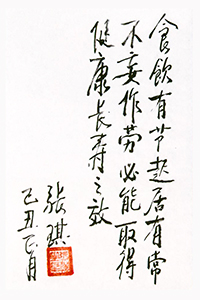 食飲有节起居有常
不妄作劳必能取得
健康长寿之效
张琪
己丑正月